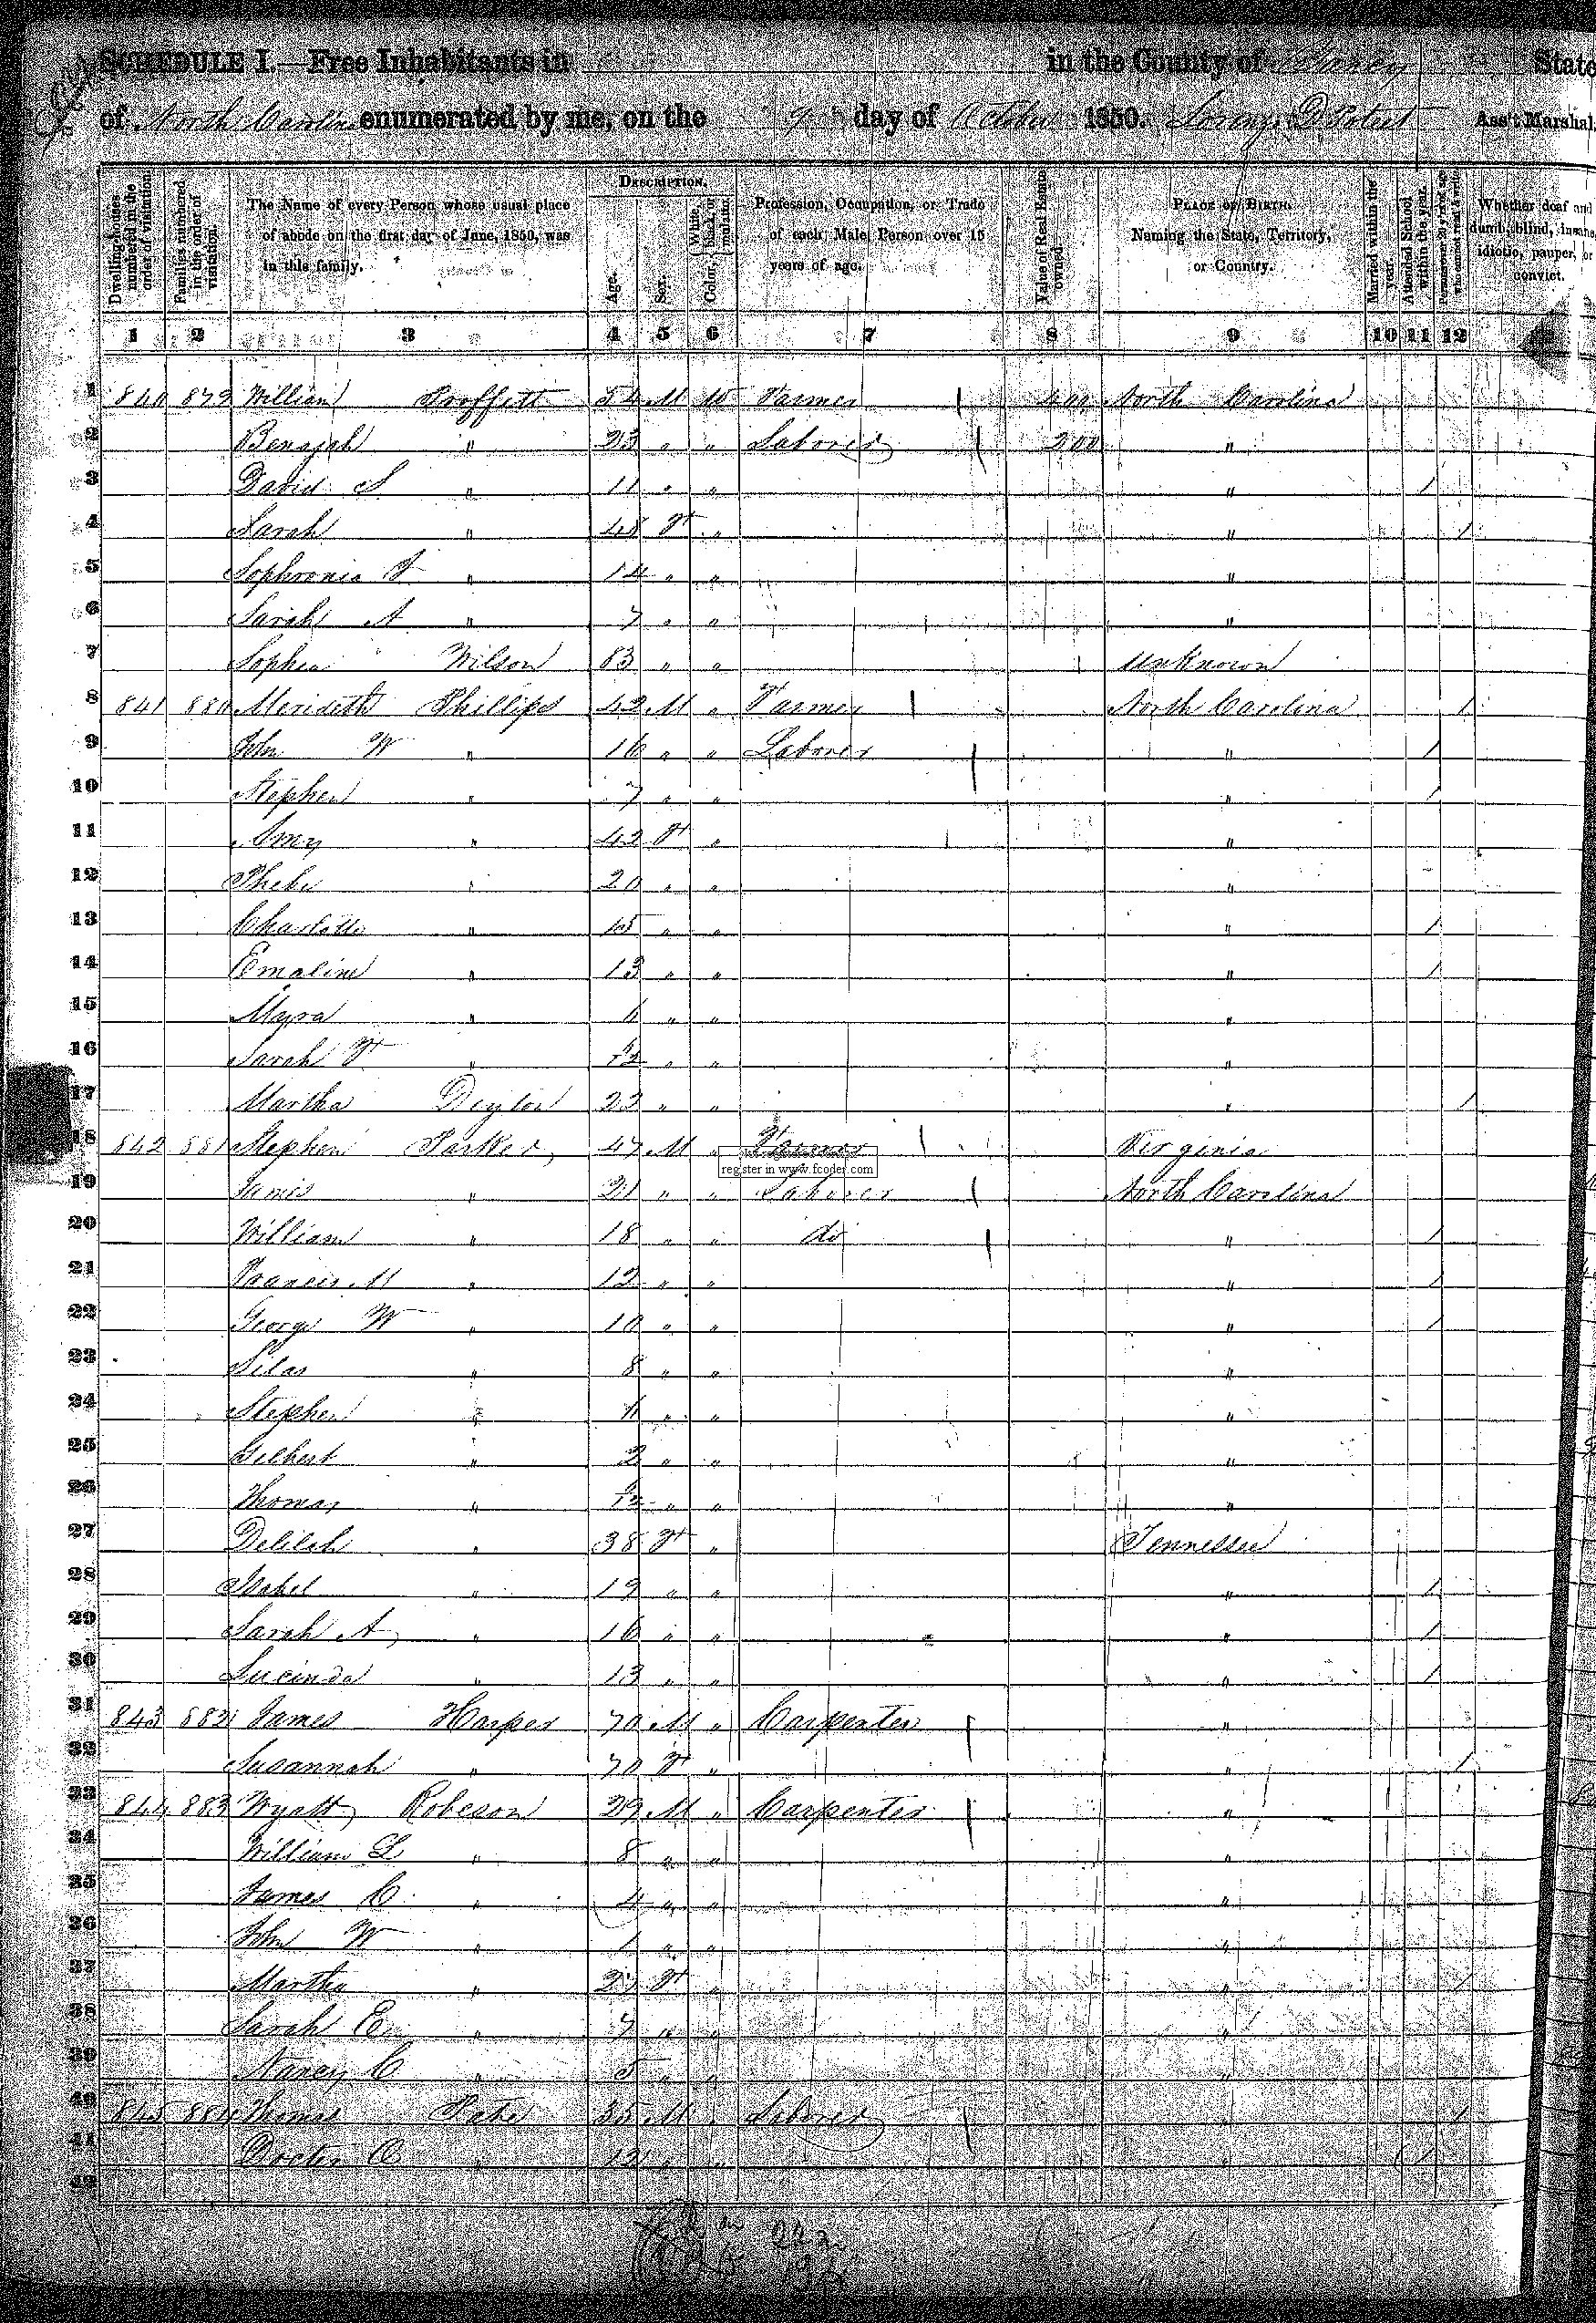 SCHEDULE I.—Free Inhabitants in in the County of Yancey State
of North Carolina enumerated by me, on the 9 day of October 1850. Lorenzo D Poteet Ass't Marshal.
Dwelling-houses numbered in the order of visitation.
Families numbered in the order of visitation.
The Name of every Person whose usual place of abode on the first day of June, 1850, was in this family.
DESCRIPTION.
Age.
Sex.
Color, { White, black, or mulatto.
Profession, Occupation, or Trade of each Male Person over 15 years of age.
Value of Real Estate owned.
PLACE OF BIRTH. Naming the State, Territory, or Country.
Married within the year.
Attended School within the year.
Persons over 20 y'rs of age who cannot read & write.
Whether deaf and dumb, blind, insane, idiotic, pauper, or convict.
1 2 3 4 5 6 7 8 9 10 11 12
1 840 879 William Proffitt 54 M W Farmer 400 North Carolina
2 Benajah " 23 " " Laborer 200 "
3 David S " 11 " " " 1
4 Sarah " 48 F " " 1
5 Sophronia " 14 " " "
6 Sarah A " 7 " " "
7 Sophia Wilson 83 " " unknown
8 841 880 Merideth Phillips 42 M " Farmer North Carolina 1
9 John W " 16 " " Laborer " 1
10 Stephen " 7 " " " 1
11 Amy " 42 F " "
12 Phebe " 20 " " "
13 Charlotte " 15 " " " 1
14 Emaline " 13 " " " 1
15 Myra " 6 " " "
16 Sarah F " " " "
17 Martha Deyton 22 " " " 1
18 842 881 Stephen Parker 47 M " Farmer Virginia
register in www.fcoder.com
19 James " 21 " " Laborer North Carolina
20 William " 18 " " do " 1
21 Francis M " 12 " " " 1
22 George W " 10 " " " 1
23 Silas " 8 " " "
24 Stephen " " " "
25 Gilbert " 2 " " "
26 Thomas " " " "
27 Delilah " 38 F " Tennessee
28 Isabel " 19 " " " 1
29 Sarah A " 16 " " " 1
30 Lucinda " 13 " " " 1
31 843 882 James Harper 70 M " Carpenter "
32 Susannah " 70 F " " 1
33 844 883 Wyatt Robeson 29 M " Carpenter "
34 William L " 8 " " "
35 James C " 4 " " "
36 John W " 1 " " "
37 Martha " 27 F " " 1
38 Sarah E " 7 " " "
39 Nancy C " 5 " " "
40 845 884 Thomas Pate 35 M " Laborer " 1
41 Docter C " 12 " " " 1
42